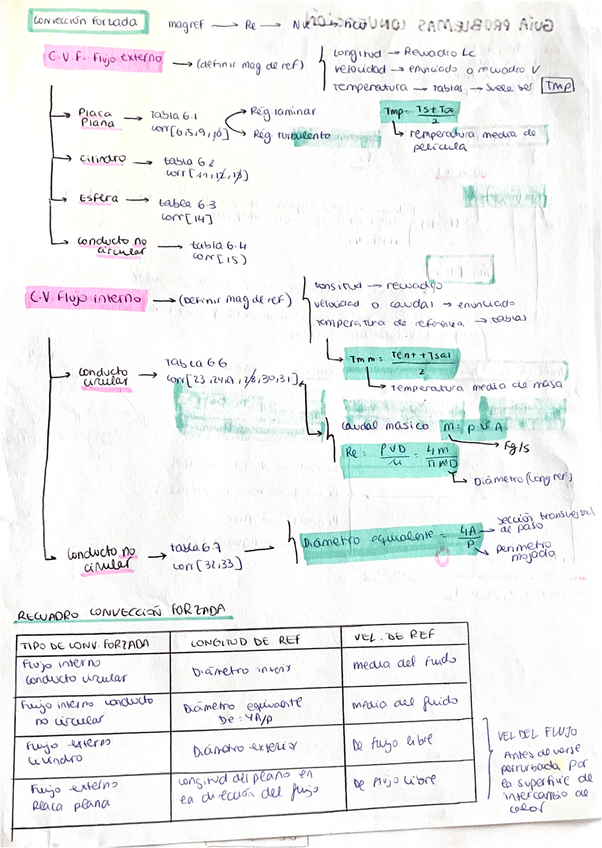 CONVECCIÓN FORZADA
mag ref → Re → Nu
GUÍA PROBLEMAS CONVECCIÓN
C.V.F. Flujo externo → (definir mag de ref)
Longitud → Recuadro Lc
velocidad → enunciado o recuadro V
Temperatura → tablas → suele ser Tmp
Placa Plana → tabla 6.1
corr[6,5,9,10]
Rég laminar
Rég turbulento
Tmp = Ts+T∞ / 2
temperatura media de película
cilindro → tabla 6.2
corr[11,12,13]
Esfera → tabla 6.3
corr[14]
conducto no circular → tabla 6.4
corr[15]
C.V Flujo interno → (definir mag de ref)
longitud → recuadro
velocidad o caudal → enunciado
temperatura de referencia → tablas
Tmm = Tent + Tsal / 2
temperatura media de masa
conducto circular → TABLA 6.6
caudal másico m = ρ V A
Kg/s
Re = ρVD / μ = 4m / πμD
Diámetro (long ref)
conducto no circular → tabla 6.7
corr[32,33]
Diámetro equivalente = 4A / P
sección transversal de paso
perímetro mojado
RECUADRO CONVECCIÓN FORZADA
TIPO DE CONV. FORZADA
LONGITUD DE REF
VEL. DE REF
Flujo interno conducto circular
Diámetro interior
media del fluido
Flujo interno conducto no circular
Diámetro equivalente De = 4A/P
media del fluido
Flujo externo cilindro
Diámetro exterior
De flujo libre
Flujo externo placa plana
longitud del plano en la dirección del flujo
De flujo libre
VEL DEL FLUJO
Antes de verse
perturbada por
la superficie de
intercambio de
calor